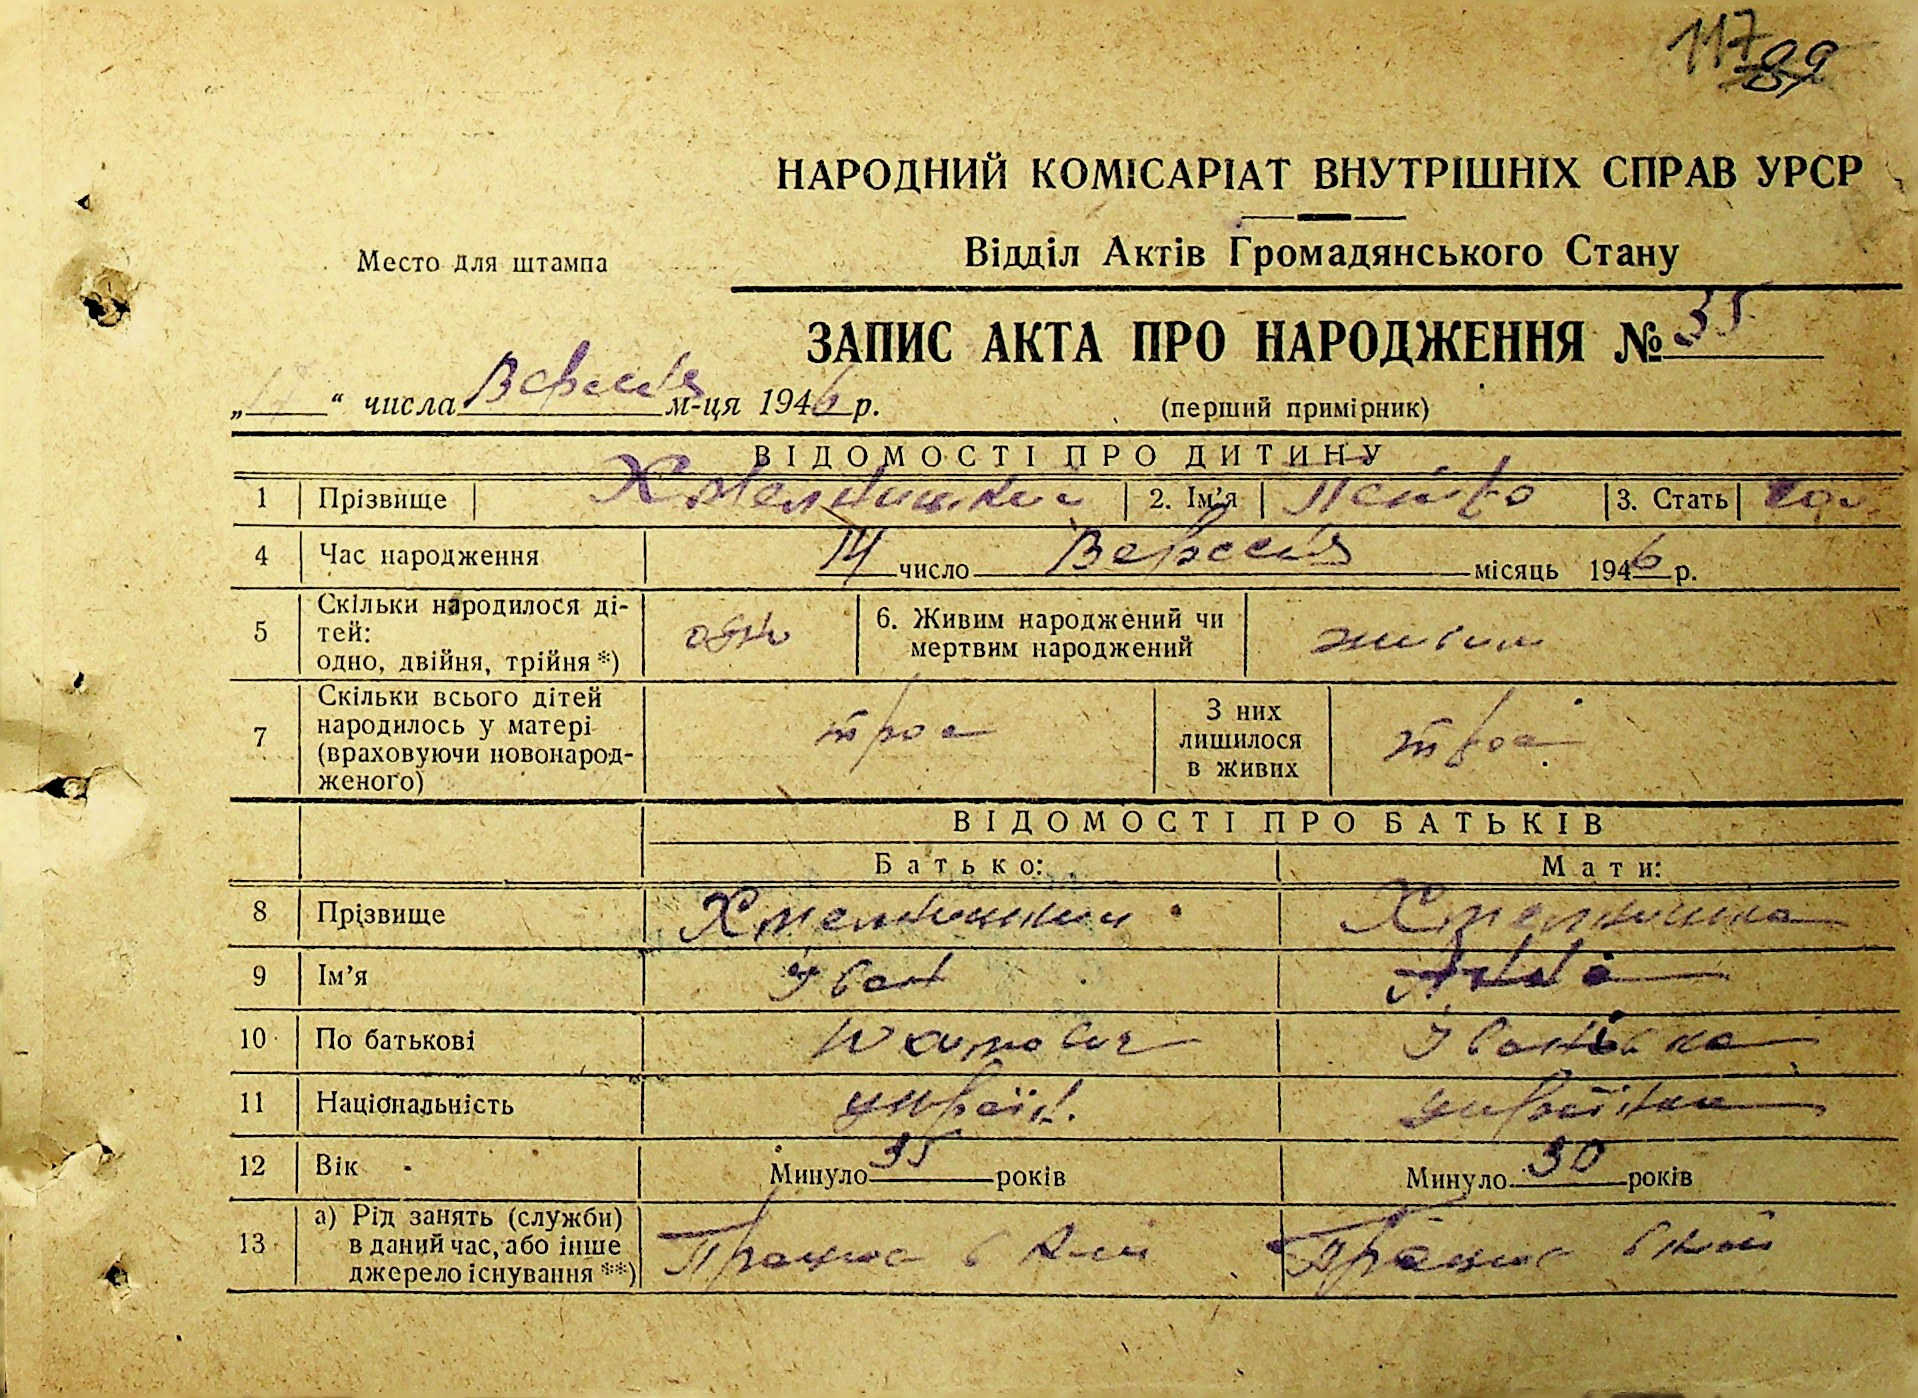 117
НАРОДНИЙ КОМІСАРІАТ ВНУТРІШНІХ СПРАВ УРСР
Место для штампа
Відділ Актів Громадянського Стану
ЗАПИС АКТА ПРО НАРОДЖЕННЯ № 35
„17“ числа Вересня м-ця 1946 р.
(перший примірник)
ВІДОМОСТІ ПРО ДИТИНУ
1 Прізвище Хмельницький 2. Ім’я Петро 3. Стать
4 Час народження 14 число Вересня місяць 1946 р.
5 Скільки народилося ді-
тей:
одно, двійня, трійня *) одно
6. Живим народжений чи
мертвим народжений живим
7 Скільки всього дітей
народилось у матері
(враховуючи новонарод-
женого) троє
З них
лишилося
в живих троє
ВІДОМОСТІ ПРО БАТЬКІВ
Батько: Мати:
8 Прізвище Хмельницький Хмельницька
9 Ім’я Іван Анна
10 По батькові Іванівна
11 Національність україн. українка
12 Вік Минуло 35 років Минуло 30 років
13 а) Рід занять (служби)
в даний час, або інше
джерело існування **) Працює в Працює в